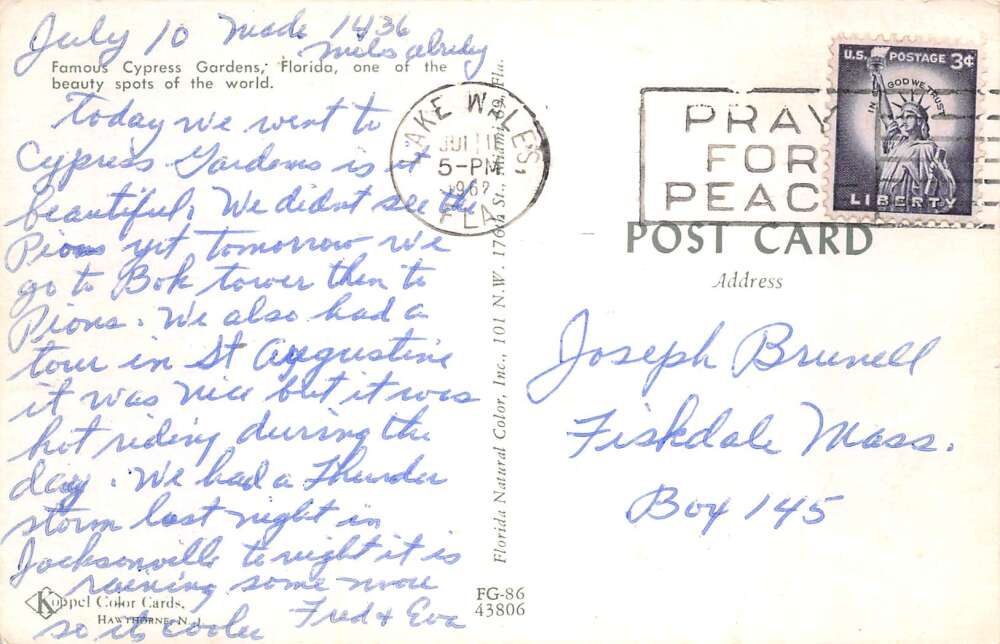 July 10 Made 1436
miles alredy
Famous Cypress Gardens, Florida, one of the
beauty spots of the world.
Today we went to
Cypress Gardens is it
beautiful, We didnt see the
Pions yet tomorrow we
go to Bok tower then to
Pions. We also had a
tour in St Augustine
it was nice but it was
hot riding during the
day. We had a thunder
storm last night in
Jacksonville to night it is
raining some more
so its cooler
Fred & Eva
Koppel Color Cards,
HAWTHORNE, N. J.
FG-86
43806
Florida Natural Color, Inc., 101 N.W. 176th St., Miami 69, Fla.
LAKE WALES,
JUL 11
5-PM
1962
FLA
PRAY
FOR
PEACE
U.S. POSTAGE 3¢
IN GOD WE TRUST
LIBERTY
POST CARD
Address
Joseph Brunell
Fiskdale Mass.
Box 145